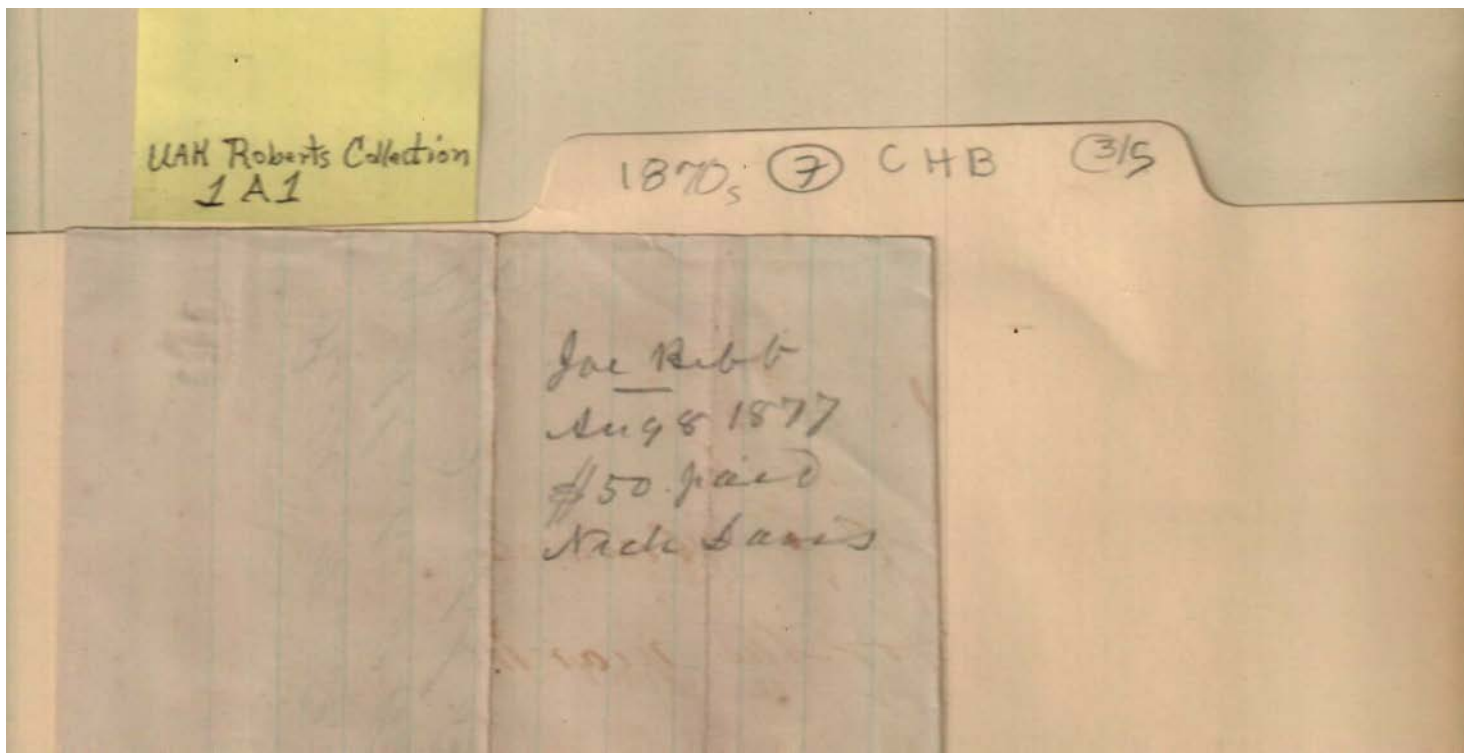 UAH Roberts Collection
1A1
1870s 7 CHB 3/5
Joe Bibb
Aug 8 1877
$50 paid
Nick Davis